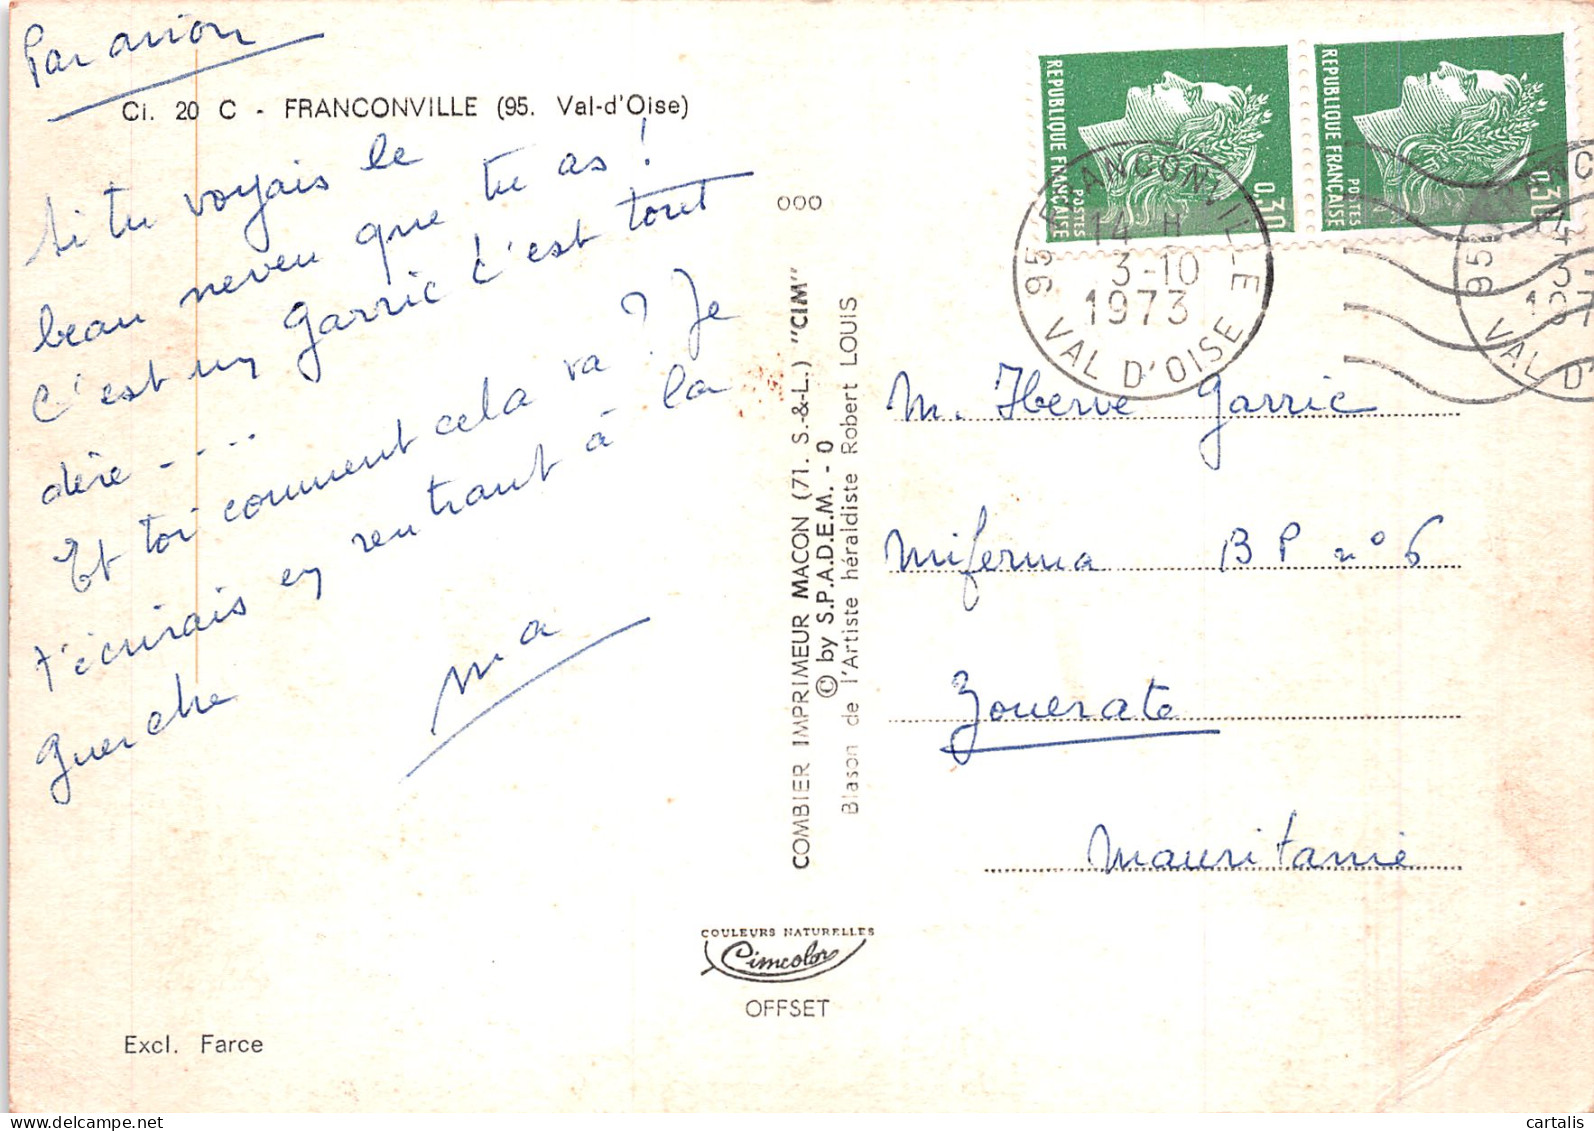 Par avion
Ci. 20 C - FRANCONVILLE (95. Val-d'Oise)
Si tu voyais le
beau neveu que tu as !
C'est un Garric c'est tout
dire - - - -
Et toi comment cela va ? Je
t'écrirais en rentrant à la
Guerche
Ma
Excl. Farce
000
COMBIER IMPRIMEUR MACON (71. S.-&-L.) "CIM"
© by S.P.A.D.E.M. - O
Blason de l'Artiste héraldiste Robert LOUIS
COULEURS NATURELLES
Cimcolor
OFFSET
REPUBLIQUE FRANÇAISE
POSTES
0,30
REPUBLIQUE FRANÇAISE
POSTES
0,30
95 FRANCONVILLE
14 H
3-10
1973
VAL D'OISE
M. Herve Garric
Miferma BP n° 6
Zouerate
Mauritanie